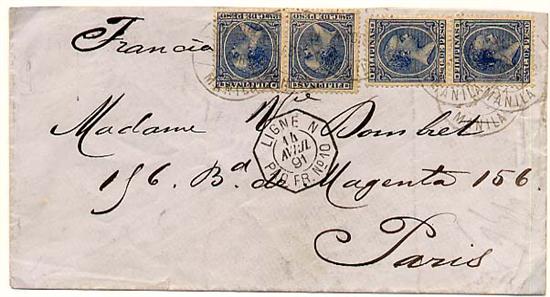 Francia
FILIPINAS
FILIPINAS
FILIPINAS
FILIPINAS
MANILA
MANILA
MANILA
LIGNE N
14
AVRIL
91
PAQ. FR. Nº 10
Madame Vve Pombet
156. Bd. de Magenta 156.
Paris